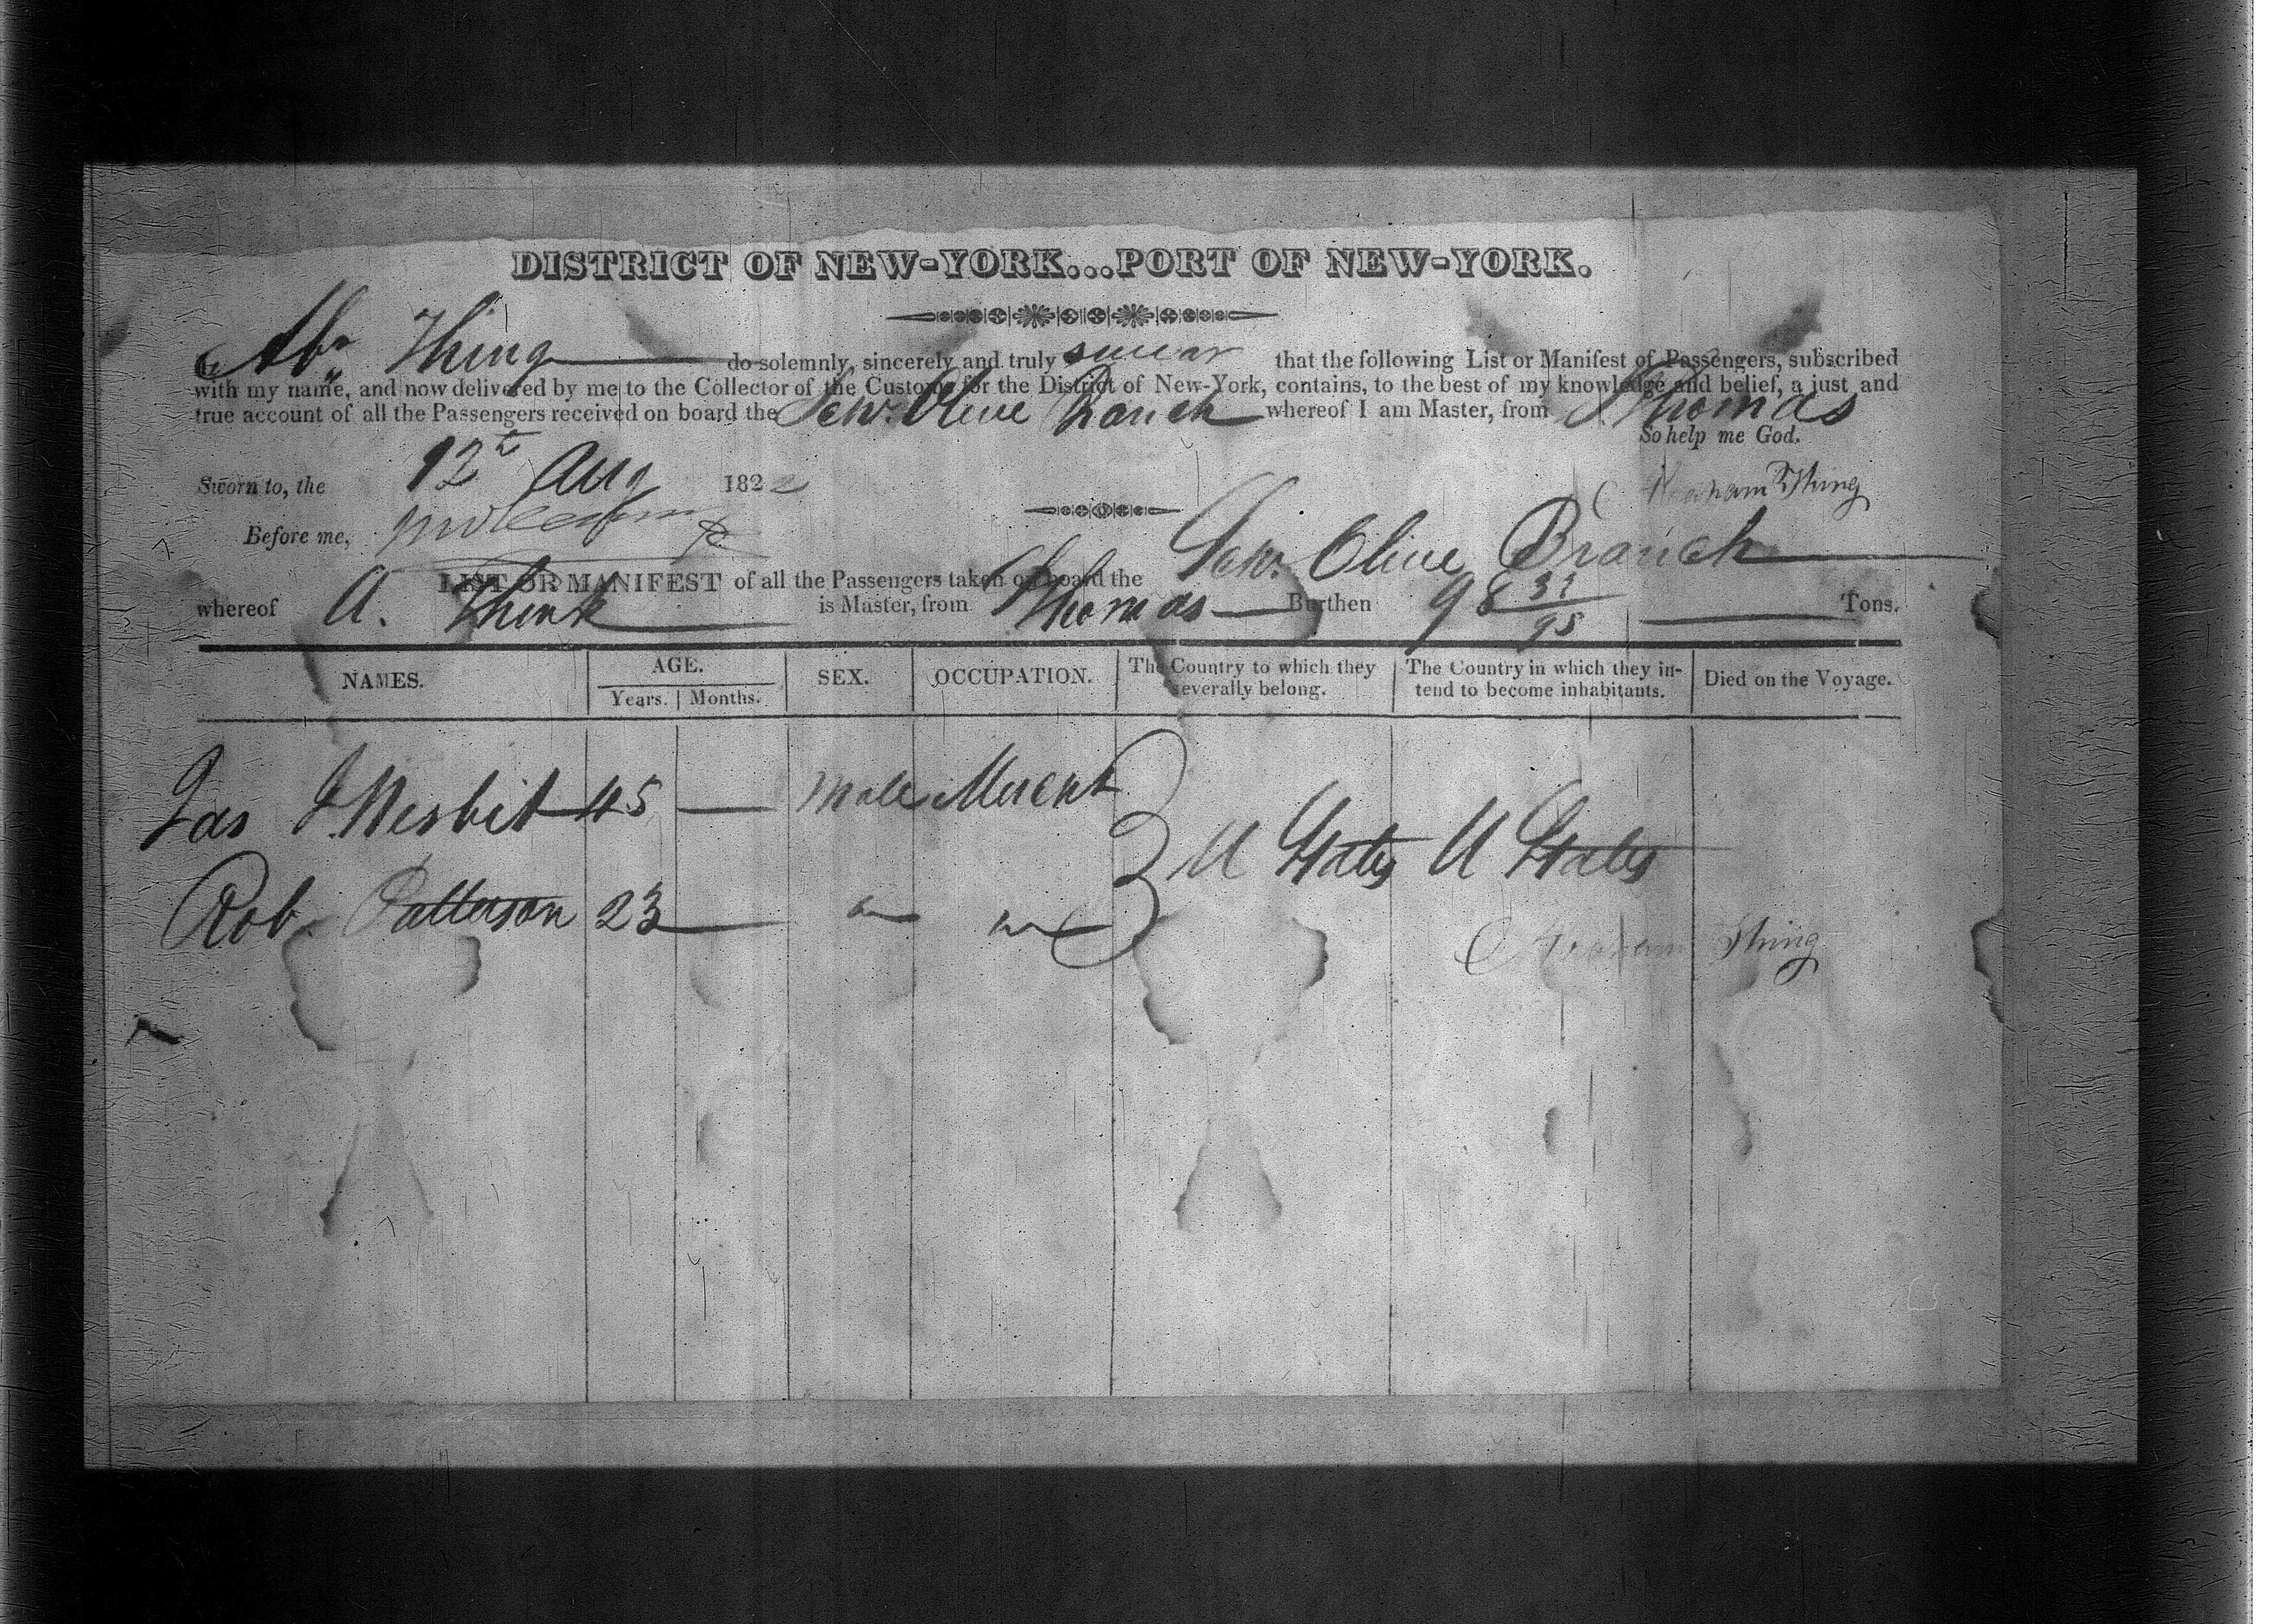 DISTRICT OF NEW-YORK...PORT OF NEW-YORK.
I, Abm Thing do solemnly, sincerely and truly swear that the following List or Manifest of Passengers, subscribed
with my name, and now delivered by me to the Collector of the Customs for the District of New-York, contains, to the best of my knowledge and belief, a just and
true account of all the Passengers received on board the Schr. Olive Branch whereof I am Master, from St Thomas
So help me God.
Sworn to, the 12th Aug 1822
Abraham Thing
Before me,
LIST OR MANIFEST of all the Passengers taken on board the Schr. Olive Branch
whereof A. Think is Master, from St Thomas Burthen 98 32/95 Tons.
NAMES. AGE. SEX. OCCUPATION. The Country to which they severally belong. The Country in which they intend to become inhabitants. Died on the Voyage.
Years. Months.
Jas J. Nesbit 45 — Male Mercht
U States U States
Rob. Patterson 23 — " "
Abraham Thing